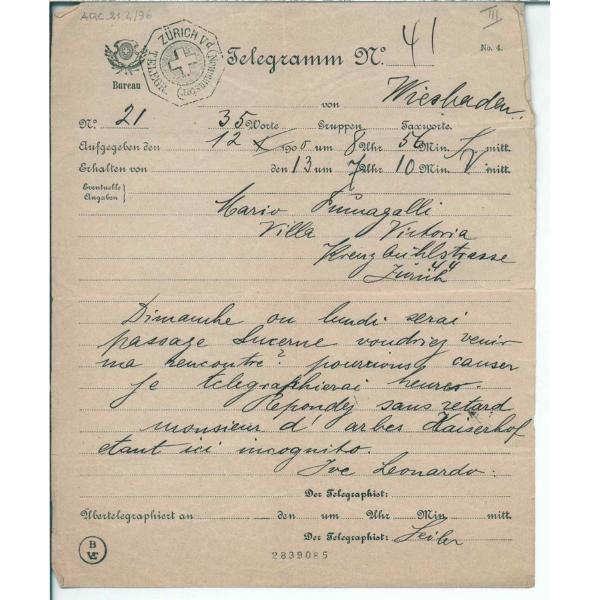 ARC. 21.4/96
III
ZÜRICH V.
TELEGR.
Telegramm Nº. 41
No. 4.
Bureau
von Wiesbaden.
Nº. 21 35 Worte Gruppen Taxworte.
Aufgegeben den 12 X 1900 um 8 Uhr 56 Min. mitt.
Erhalten von den 13 um 7 Uhr 10 Min. V mitt.
Eventuelle Angaben
Mario Fumagalli
Villa Victoria
Kreuzbühlstrasse
44
Zürich
Dimanche ou lundi serai
passage Lucerne voudriez venir
ma rencontre? pourrions causer
je telegraphierai heures.
Repondez sans retard
monsieur d' arbes Kaiserhof
etant ici incognito.
Leonardo.
Der Telegraphist:
Übertelegraphiert an den um Uhr Min. mitt.
Der Telegraphist: Seiler
B
2839085